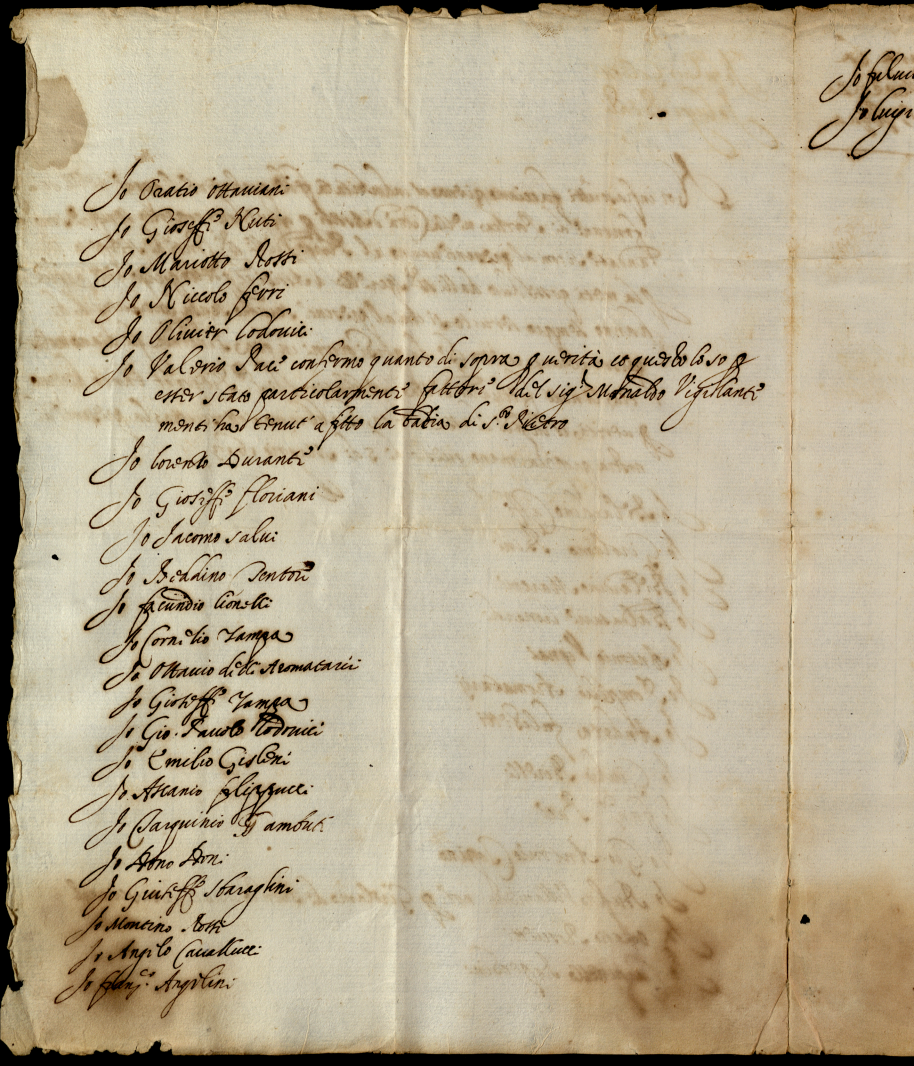 Io Oratio Ottaviani
Io Gioseffo Nuti
Io Mariotto Rossi
Io Niccolo ferri
Io Olivier Lodovici
Io Valerio Pace confermo quanto di sopra p verità et questo lo so p
esser stato particolarmente fattore del sig.r Monaldo Vigillante
mentr ha tenut' a fitto la badia di S.to Pietro
Io Lorenzo Durante
Io Gioseffo floriani
Io Jacomo salvi
Io Tentori
Io facundio Lionelli
Io Cornelio Zampa
Io Ottavio delli Aromatarii
Io Gioseffo Zampa
Io Gio. Pauolo Lodovici
Io Emilio Gisleni
Io Ascanio filippucci
Io Tarquinio Gambuti
Io Dono Doni
Io Giuseffo sbaraglini
Io Montino Rossi
Io Angilo Cavallucci
Io franc.o Angilini
Io
Io Luigi